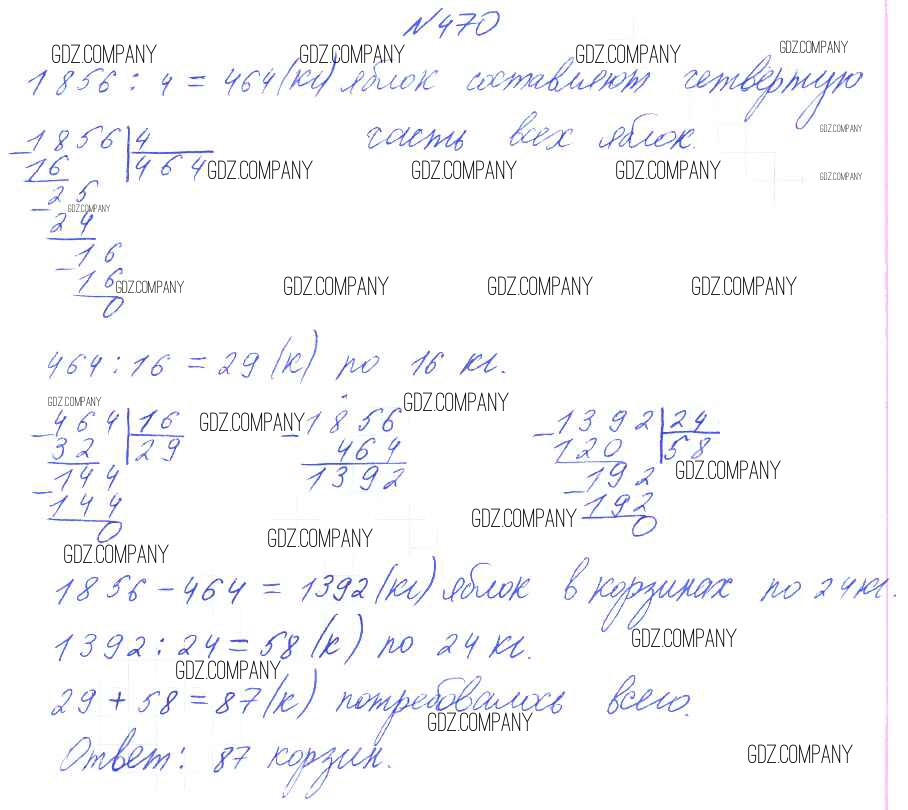 №470
GDZ.COMPANY GDZ.COMPANY GDZ.COMPANY GDZ.COMPANY
1856 : 4 = 464 (кг) яблок составляют четвертую
часть всех яблок.
GDZ.COMPANY
1856 4
16 464
GDZ.COMPANY GDZ.COMPANY GDZ.COMPANY GDZ.COMPANY
25
GDZ.COMPANY
24
16
16
GDZ.COMPANY GDZ.COMPANY GDZ.COMPANY GDZ.COMPANY
0
464 : 16 = 29 (к) по 16 кг.
GDZ.COMPANY GDZ.COMPANY
464 16 1856 1392 24
GDZ.COMPANY
32 29 464 120 58
144 1392 192
GDZ.COMPANY
144 192
0 0
GDZ.COMPANY
GDZ.COMPANY
GDZ.COMPANY
1856 - 464 = 1392 (кг) яблок в корзинах по 24 кг.
1392 : 24 = 58 (к) по 24 кг.
GDZ.COMPANY
GDZ.COMPANY
29 + 58 = 87 (к) потребовалось всего.
GDZ.COMPANY
Ответ: 87 корзин.
GDZ.COMPANY